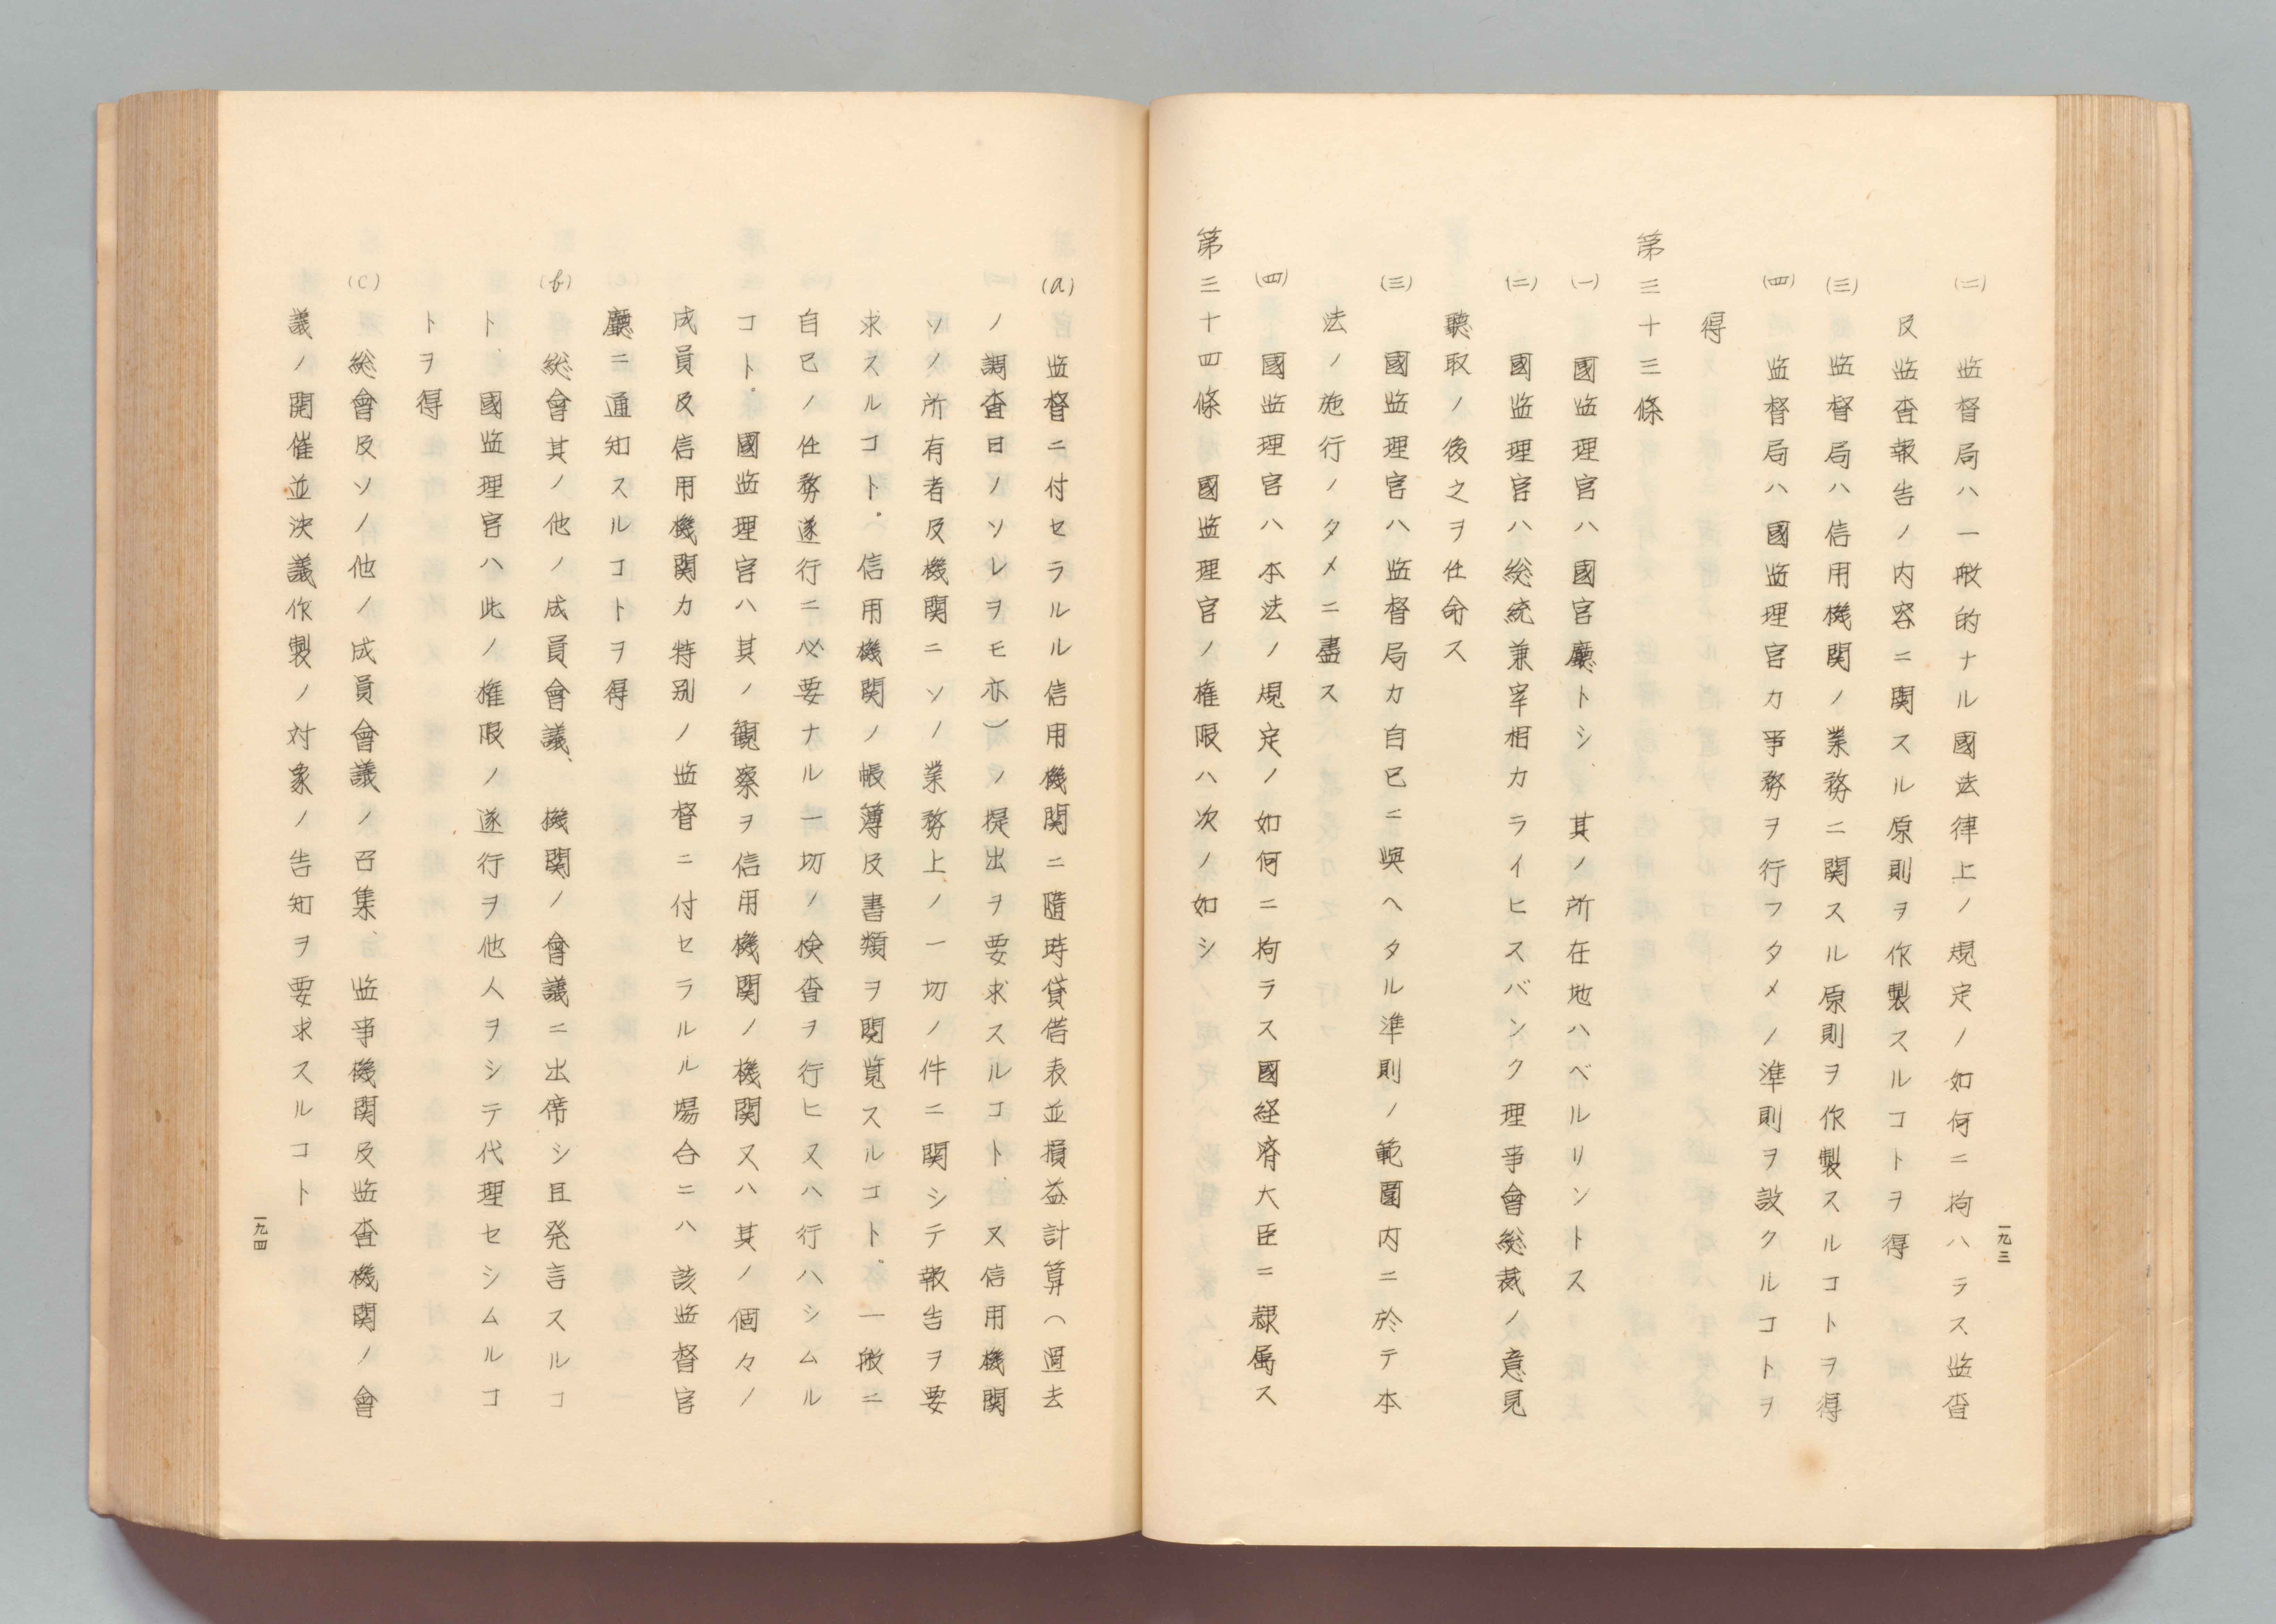 (二) 監督局ハ一般的ナル國法律上ノ規定ノ如何ニ拘ハラス監査
及監査報告ノ内容ニ関スル原則ヲ作製スルコトヲ得
(三) 監督局ハ信用機関ノ業務ニ関スル原則ヲ作製スルコトヲ得
(四) 監督局ハ國監理官カ爭務ヲ行フタメノ準則ヲ設クルコトヲ
得
第三十三條
(一) 國監理官ハ國官廳トシ、其ノ所在地ハベルリントス
(二) 國監理官ハ総統兼宰相カライヒスバンク理事會総裁ノ意見
聽取ノ後之ヲ任命ス
(三) 國監理官ハ監督局カ自己ニ與ヘタル準則ノ範圍内ニ於テ本
法ノ施行ノタメニ盡ス
(四) 國監理官ハ本法ノ規定ノ如何ニ拘ラス國経済大臣ニ隷属ス
第三十四條 國監理官ノ権限ハ次ノ如シ
一九三
(a) 監督ニ付セラルル信用機関ニ隨時貸借表並損益計算(過去
ノ調査日ノソレヲモ亦)ノ提出ヲ要求スルコト、又信用機関
ソノ所有者及機関ニソノ業務上ノ一切ノ件ニ関シテ報告ヲ要
求スルコト。信用機関ノ帳簿及書類ヲ閲覧スルコト。一般ニ
自己ノ任務遂行ニ必要ナル一切ノ検査ヲ行ヒ又ハ行ハシムル
コト。國監理官ハ其ノ観察ヲ信用機関ノ機関又ハ其ノ個々ノ
成員及信用機関カ特別ノ監督ニ付セラルル場合ニハ該監督官
廳ニ通知スルコトヲ得
(b) 総會其ノ他ノ成員會議、機関ノ會議ニ出席シ且発言スルコ
ト、國監理官ハ此ノ権限ノ遂行ヲ他人ヲシテ代理セシムルコ
トヲ得
(c) 総會及ソノ他ノ成員會議ノ召集、監事機関及監査機関ノ會
議ノ開催並決議作製ノ対象ノ告知ヲ要求スルコト
一九四